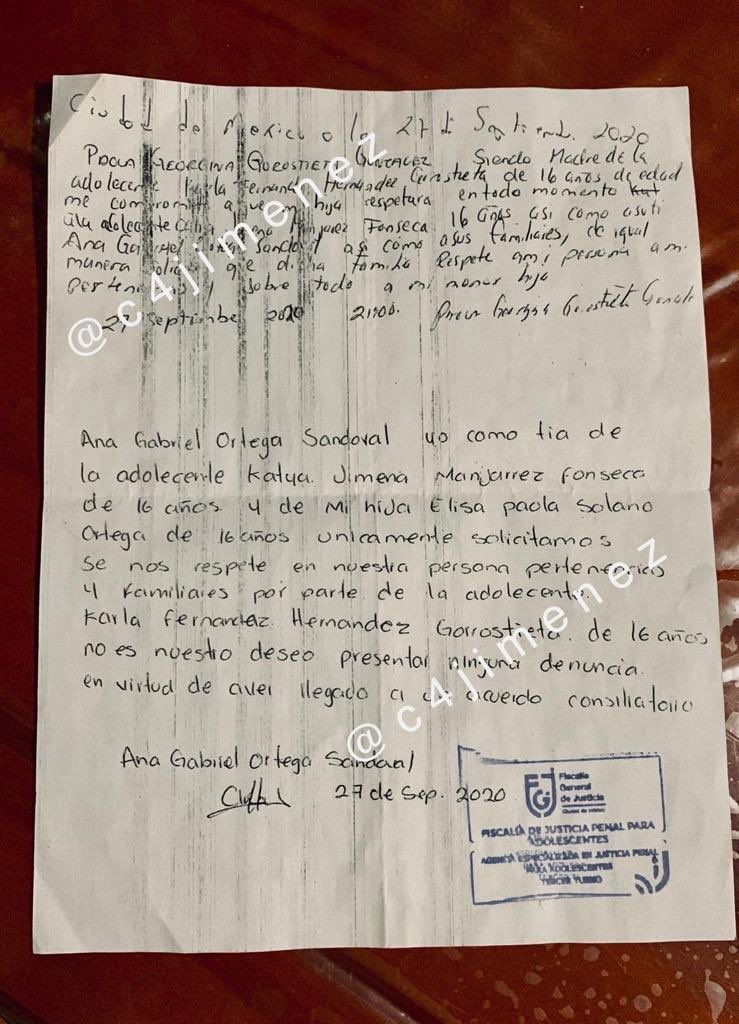 Ciudad de Mexico a 27 d Septiemb. 2020
GEORGINA GOROSTIETA GONZALEZ Siendo Madre de la
adolecente Karla Fernanda Hernandez de 16 años de edad
me comprometo a que mi hija respetura en todo momento
Jimena Manjarrez Fonseca 16 años asi como
Ana Gabriel Sandoval asi como a sus familiares, de igual
manera que dicha familia Respete a mi persona a mi
sobre todo a mi menor hija
27 septiembre 2020 21:00. Gorostieta
@c4jimenez
Ana Gabriel Ortega Sandoval yo como tia de
la adolecente Katya. Jimena Manjarrez Fonseca
de 16 años y de Mi hija Elisa paola Solano
Ortega de 16 años unicamente solicitamos
se nos respete en nuestra persona pertenencias
y Familiares por parte de la adolecente.
Karla Fernandez. Hernandez Gorrostieta. de 16 años
no es nuestro deseo presentar ninguna denuncia.
en virtud de aver llegado a un acuerdo consiliatorio
@c4jimenez
Ana Gabriel Ortega Sandoval
27 de Sep. 2020
FGJ
Fiscalía
General
de Justicia
Ciudad de México
FISCALÍA DE JUSTICIA PENAL PARA
ADOLESCENTES
AGENCIA ESPECIALIZADA EN JUSTICIA PENAL
PARA ADOLESCENTES
TERCER TURNO